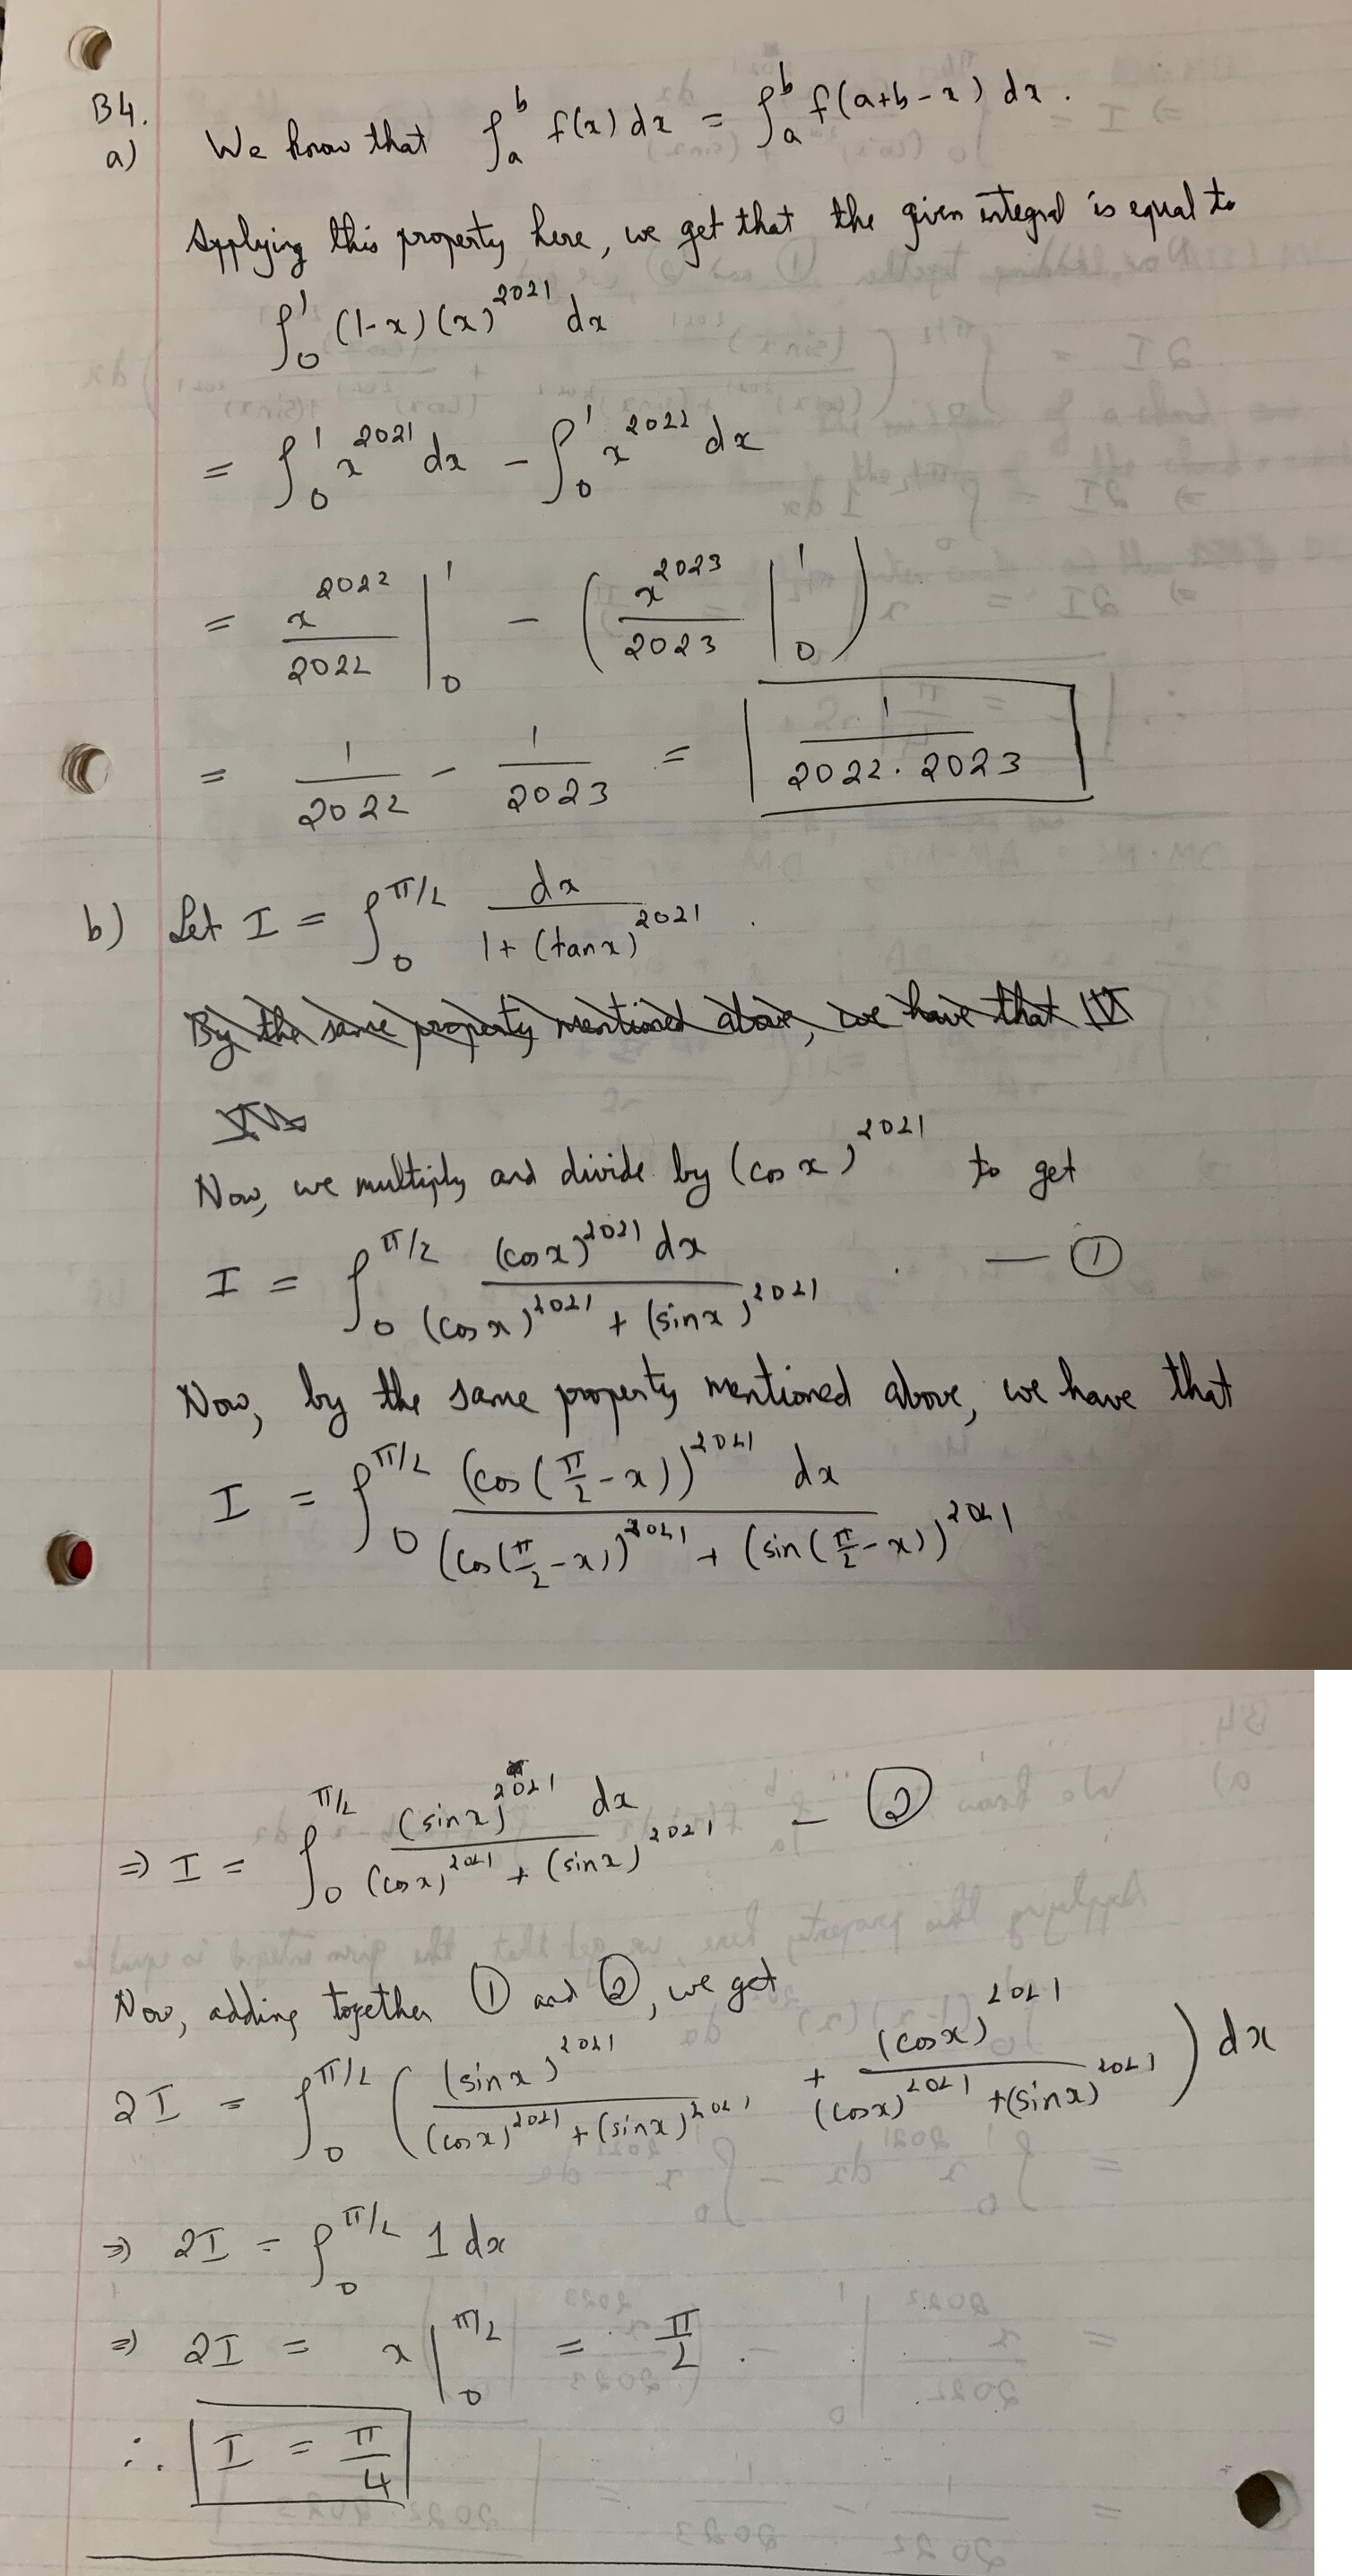 B4.
a) We know that ∫_a^b f(x) dx = ∫_a^b f(a+b-x) dx.
Applying this property here, we get that the given integral is equal to
∫_0^1 (1-x)(x)^2021 dx
= ∫_0^1 x^2021 dx - ∫_0^1 x^2022 dx
= x^2022/2022 |_0^1 - (x^2023/2023 |_0^1)
= 1/2022 - 1/2023 = 1/(2022·2023)
b) Let I = ∫_0^{π/2} dx/(1+(tanx)^2021).
By the same property mentioned above, we have that
Now, we multiply and divide by (cos x)^2021 to get
I = ∫_0^{π/2} (cosx)^2021 dx/((cosx)^2021 + (sinx)^2021). — ①
Now, by the same property mentioned above, we have that
I = ∫_0^{π/2} (cos(π/2-x))^2021 dx/((cos(π/2-x))^2021 + (sin(π/2-x))^2021)
⇒ I = ∫_0^{π/2} (sinx)^2021 dx/((cosx)^2021 + (sinx)^2021) - ②
Now, adding together ① and ②, we get
2I = ∫_0^{π/2} ((sinx)^2021/((cosx)^2021+(sinx)^2021) + (cosx)^2021/((cosx)^2021+(sinx)^2021)) dx
⇒ 2I = ∫_0^{π/2} 1 dx
⇒ 2I = x |_0^{π/2} = π/2.
∴ I = π/4